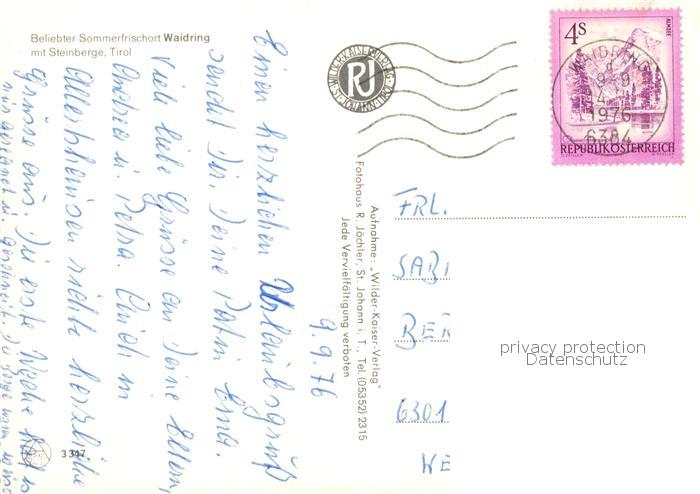 Beliebter Sommerfrischort Waidring
mit Steinberge, Tirol
9.9.76
Einen herzlichen Urlaubsgruß
sendet Dir, Deine Patin Erna.
Viele liebe Grüsse an Deine Eltern,
Andrea u. Petra. Auch in
Allertshausen richte herzliche
Grüsse aus. Die erste Woche hat
3347
WILDER-KAISER-VERLAG
RJ
ST. JOHANN
Aufnahme: „Wilder-Kaiser-Verlag"
Fotohaus R. Jöchler, St. Johann i. T., Tel. (05352) 2315
Jede Vervielfältigung verboten
4S
ALMSEE
REPUBLIK ÖSTERREICH
WAIDRING
1976
6384
FRL.
SABI
BER
6301
WE
privacy protection
Datenschutz